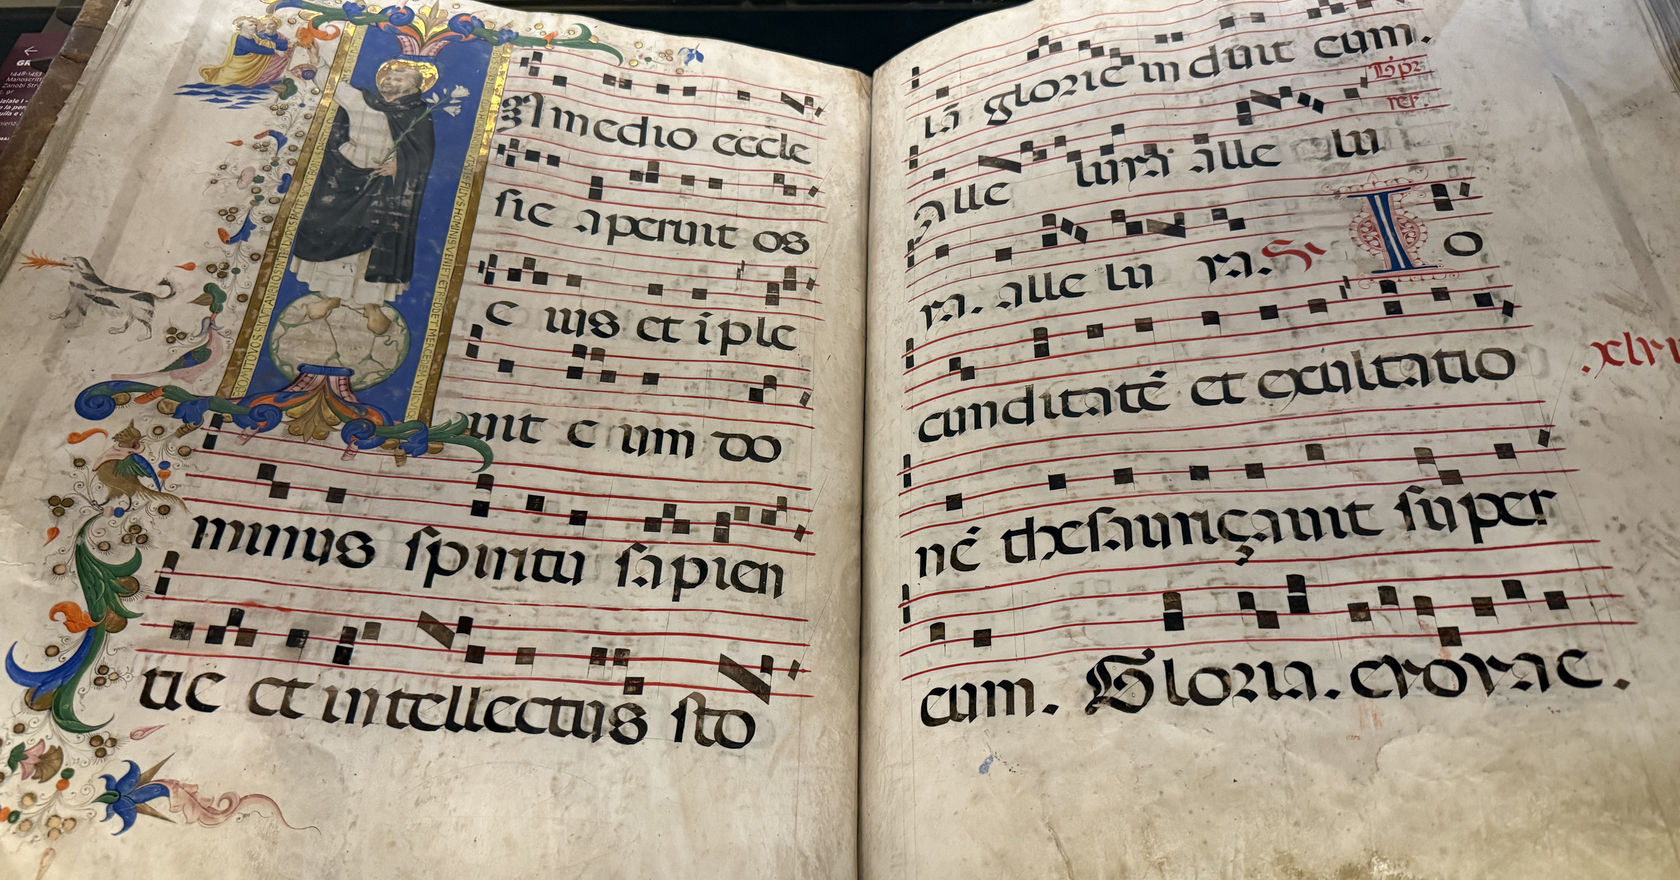 In medio eccle
sie aperuit os
e ius et iple
uit eum do
minus spiritu sapien
tie et intellectus sto
lā glorie induit eum.
alle luya alle lu
ya. alle lu ya.
Io
cunditatē et exultatio
nē thesauriçauit super
eum. Gloria. evovae.